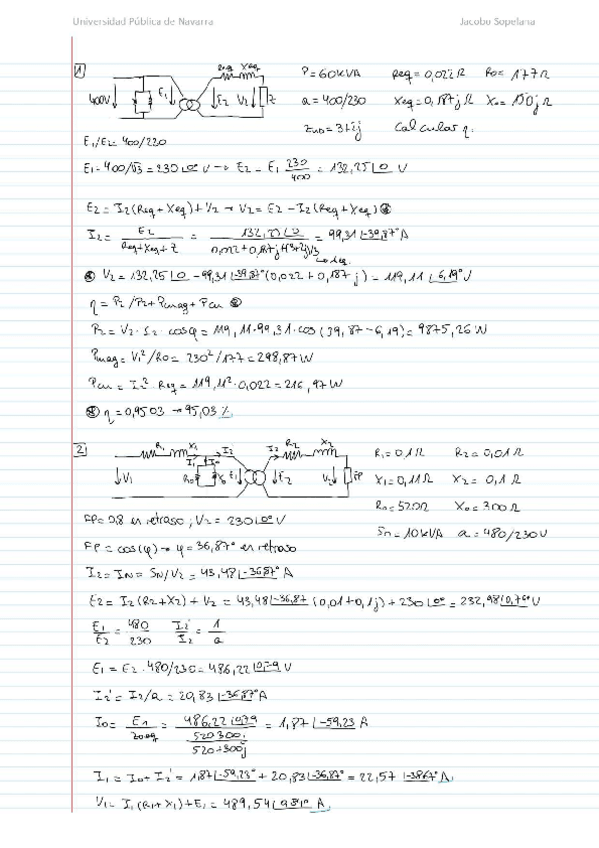 Universidad Pública de Navarra
Jacobo Sopelana
1
Req Xeq
400V E1 E2 V2 Z
P = 60KVA Req = 0,022Ω Ro = 177Ω
a = 400/230 Xeq = 0,187jΩ Xo = 150jΩ
3+2j Calcular η.
E1/E2 = 400/220
E1 = 400/√3 = 230∠0° V → E2 = E1 230/400 = 132,25∠0 V
E2 = I2(Req + Xeq) + V2 → V2 = E2 - I2(Req + Xeq)
I2 = E2/(Req+Xeq+Z) = = 99,31∠-39,87° A
V2 = 132,25∠0 - 99,31∠-39,87° (0,022 + 0,187j) = 119,11∠-6,19° V
η = P2/P2+Pmag+Pcu
P2 = V2 · I2 · cosφ = 119,11·99,31·cos(39,87-6,19) = 9875,26 W
Pmag = V1²/Ro = 230²/177 = 298,87 W
Pcu = I2² · Req = 119,11² · 0,022 = 216,97 W
η = 0,9503 → 95,03 %
2
R1 X1 I2' I2 R2 X2
I1 Io
V1 Ro Xo E1 E2 V2 FP
R1 = 0,1Ω R2 = 0,01Ω
X1 = 0,11Ω X2 = 0,1Ω
Ro = 520Ω Xo = 300Ω
Sn = 10KVA a = 480/230V
FP = 0,8 en retraso ; V2 = 230∠0° V
FP = cos(φ) → φ = 36,87° en retraso
I2 = IN = SN/V2 = 43,48∠-36,87° A
E2 = I2(R2+X2) + V2 = 43,48∠-36,87 (0,01+0,1j) + 230∠0° = 232,98∠0,79° V
E1/E2 = 480/230 I2'/I2 = 1/a
E1 = E2 · 480/230 = 486,22∠0,79 V
I2' = I2/a = 20,83∠-36,87° A
Io = E1/Zoeq = 486,22∠0,79/(520·300j/(520+300j)) = 1,87∠-59,23 A
I1 = Io + I2' = 1,87∠-59,23° + 20,83∠-36,87° = 22,57∠-38,67° A
V1 = I1(R1+X1)+E1 = 489,54 A